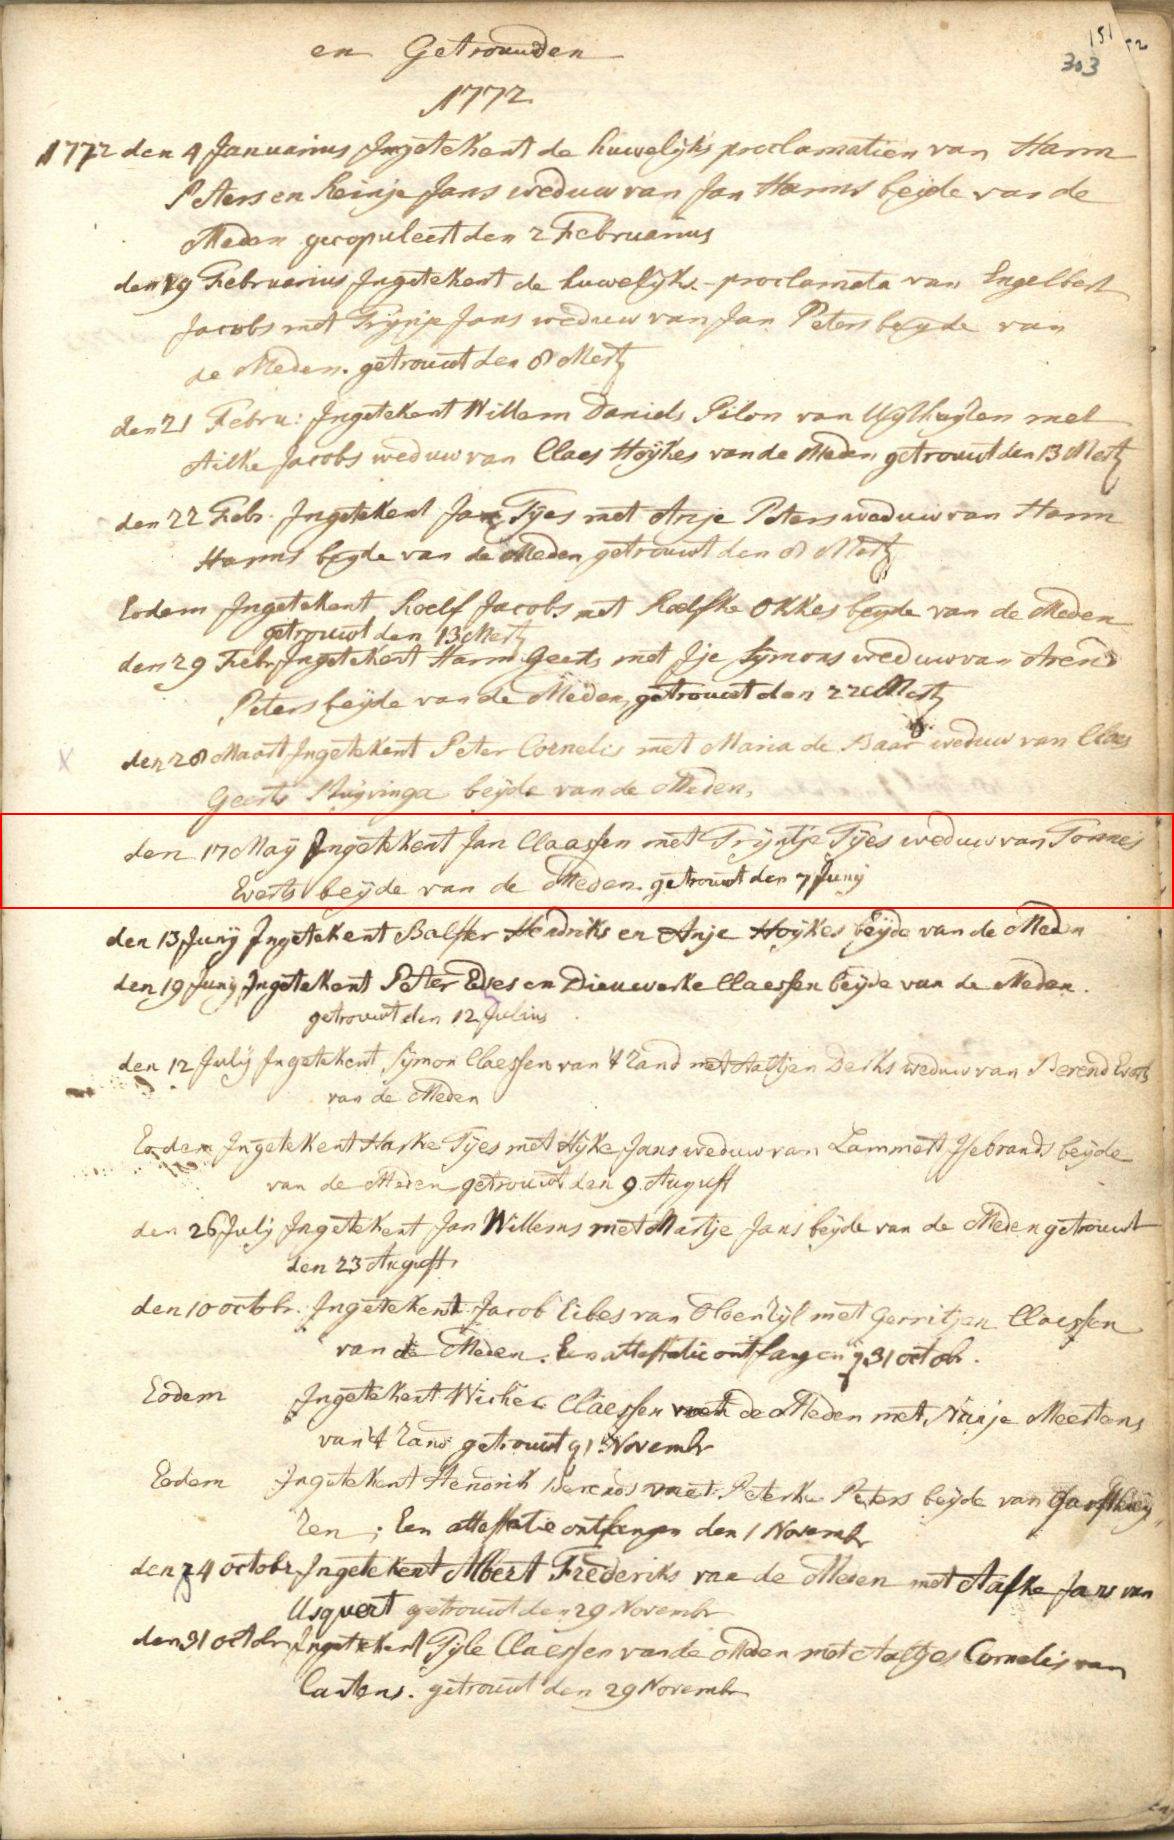 151 52
303
en Getrouwden
1772
1772 den 4 Januarius Ingetekent de huwelijks proclamatien van Harm
Peters en Reinje Jans weduw van Jan Harms beyde van de
Meden gecopuleert den 2 Februarius
den 19 Februarius Ingetekent de huwelijks-proclamata van Engelbert
Jacobs met Trijnje Jans weduw van Jan Peters beyde van
de Meden. getrouwt den 8 Mertz
den 21 Febru: Ingetekent Willem Daniels Pilon van met
Ailke Jacobs weduw van Claes Hoijkes van de Meden getrouwt den 13 Mertz
den 22 Febr. Ingetekent Jan Tijes met Anje Peters weduw van Harm
Harms beyde van de Meden getrouwt den 8 Mertz
Eodem Ingetekent Roelf Jacobs met Roelfke Okkes beyde van de Meden
getrouwt den 13 Mertz
den 29 Febr. Ingetekent Harm Geerts met Jje Sijmons weduw van Arend
Peters beijde van de Meden, getrouwt den 22 Mertz
den 28 Maart Ingetekent Peter Cornelis met Maria de Baar weduw van Claes
Geerts beijde van de Meden,
den 17 Maij Ingetekent Jan Claassen met Trijntje Tijes weduw van Tonnes
Everts beijde van de Meden. getrouwt den 7 Junij
den 13 Junij Ingetekent Balster Hendriks en Anje Hoijkes beijde van de Meden
den 19 Junij Ingetekent Peter Edses en Dieuwerke Claessen beijde van de Meden.
getrouwt den 12 Julius
den 12 Julij Ingetekent Sijmon Claessen van 't Zand met Aaltjen Derks weduw van Berend Everts
van de Meden
Eodem Ingetekent Harke Tijes met Hijke Jans weduw van Lammert Isebrands beijde
van de Meden getrouwt den 9 August
den 26 Julij Ingetekent Jan Willems met Martje Jans beijde van de Meden getrouwt
den 23 August.
den 10 octobr. Ingetekent Jacob Eibes van Oldenzijl met Gerritjen Claessen
van de Meden. Een attestatie ontfangen 31 octobr.
Eodem Ingetekent Claessen van de Meden met Meertens
van 't Zand getrouwt 1 Novembr
Eodem Ingetekent Hendrik Berends met Peterke Peters beijde van Garsthuij
zen; Een attestatie ontfangen den 1 Novembr
den 24 octobr. Ingetekent Albert Frederiks van de Meden met Aafke Jans van
Usquert getrouwt den 29 Novembr
den 31 octobr Ingetekent Tijle Claessen van de Meden met Aaltjes Cornelis van
Castens. getrouwt den 29 Novembr